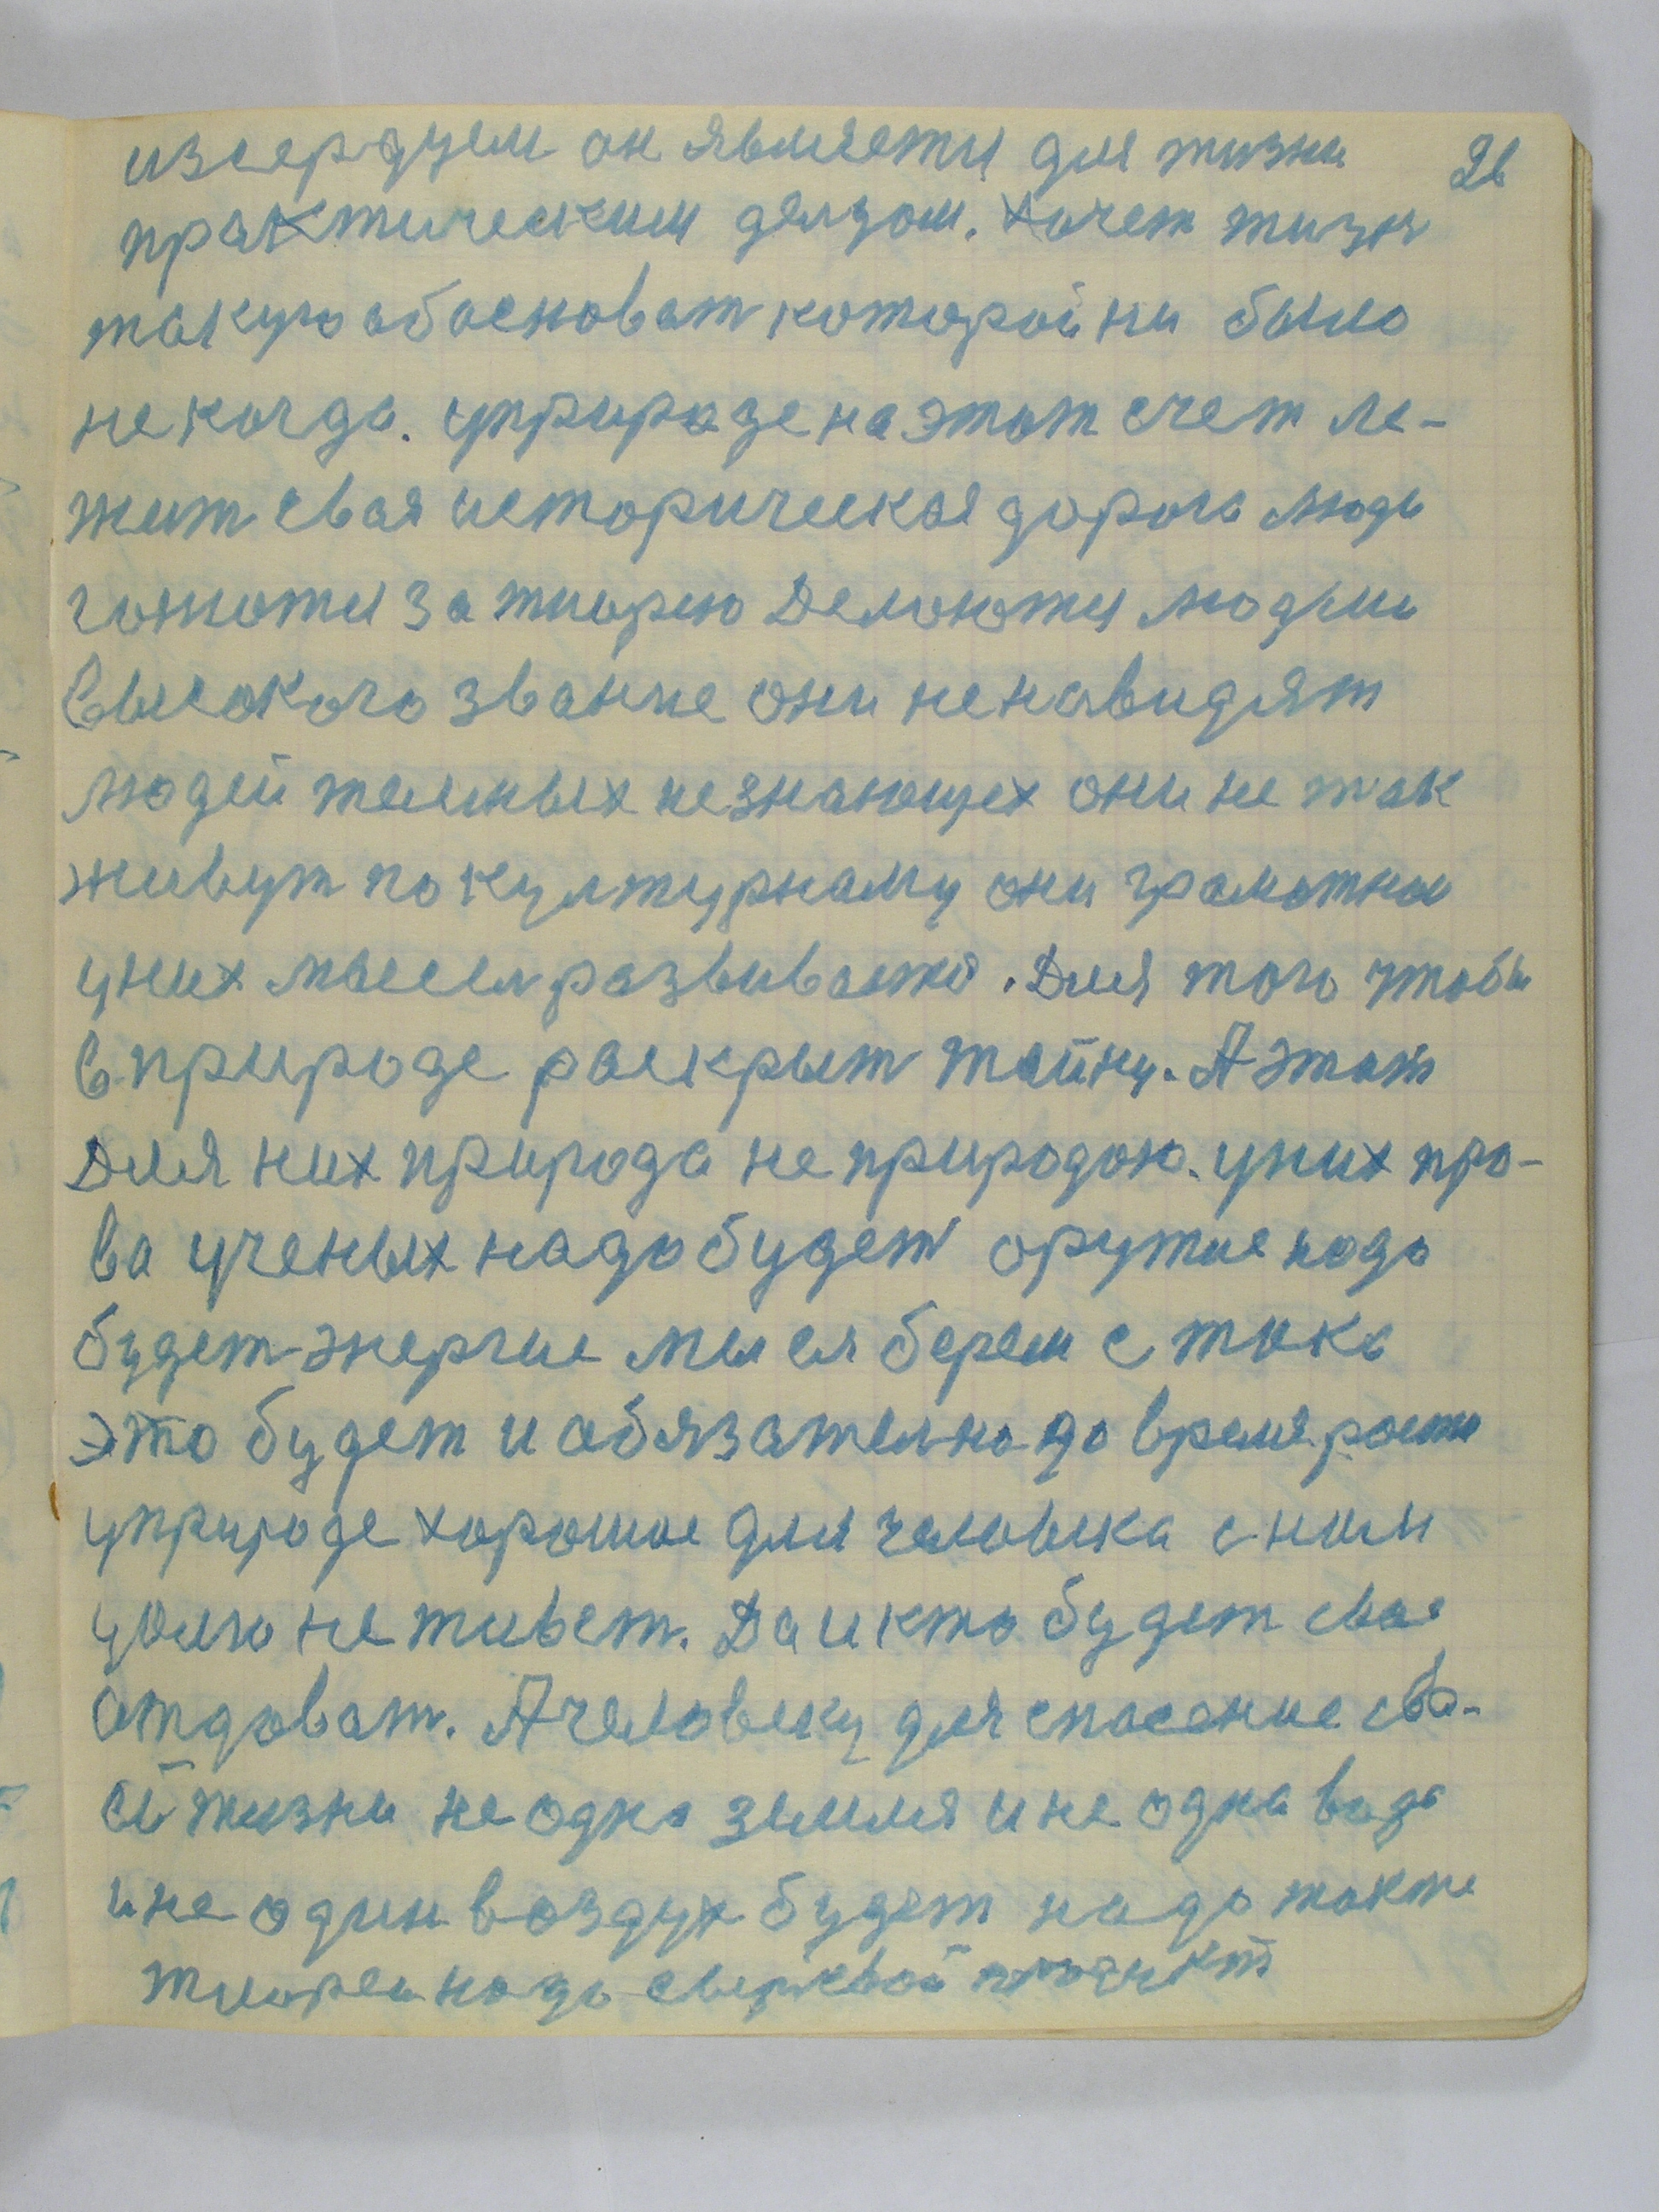 26
изсердцем он является для жизни
практическим делзом. Хочет жизн
такую обосноват которой ни было
не когда. уприроде на этот счет ле-
жит своя историческая дорога люди
гонются за тиорею делаются людми
высокого звание они ненавидят
людей темных незнающех они не так
живут по културному они грамотны
уних мысел развивается. Для того чтобы
в природе раскрыт тайну. А этот
для них природа не природою. уних пра-
ва ученых надо будет оружие надо
будет энергие мы ея берем с тока
это будет и обязателно до время расти
уприроде хорошое для человека с ним
не живет. Да и кто будет свое
отдоват. А человеку для спасение сво-
ей жизни не одна земля и не одна вода
и не один воздух будет надо также
тиорея надо